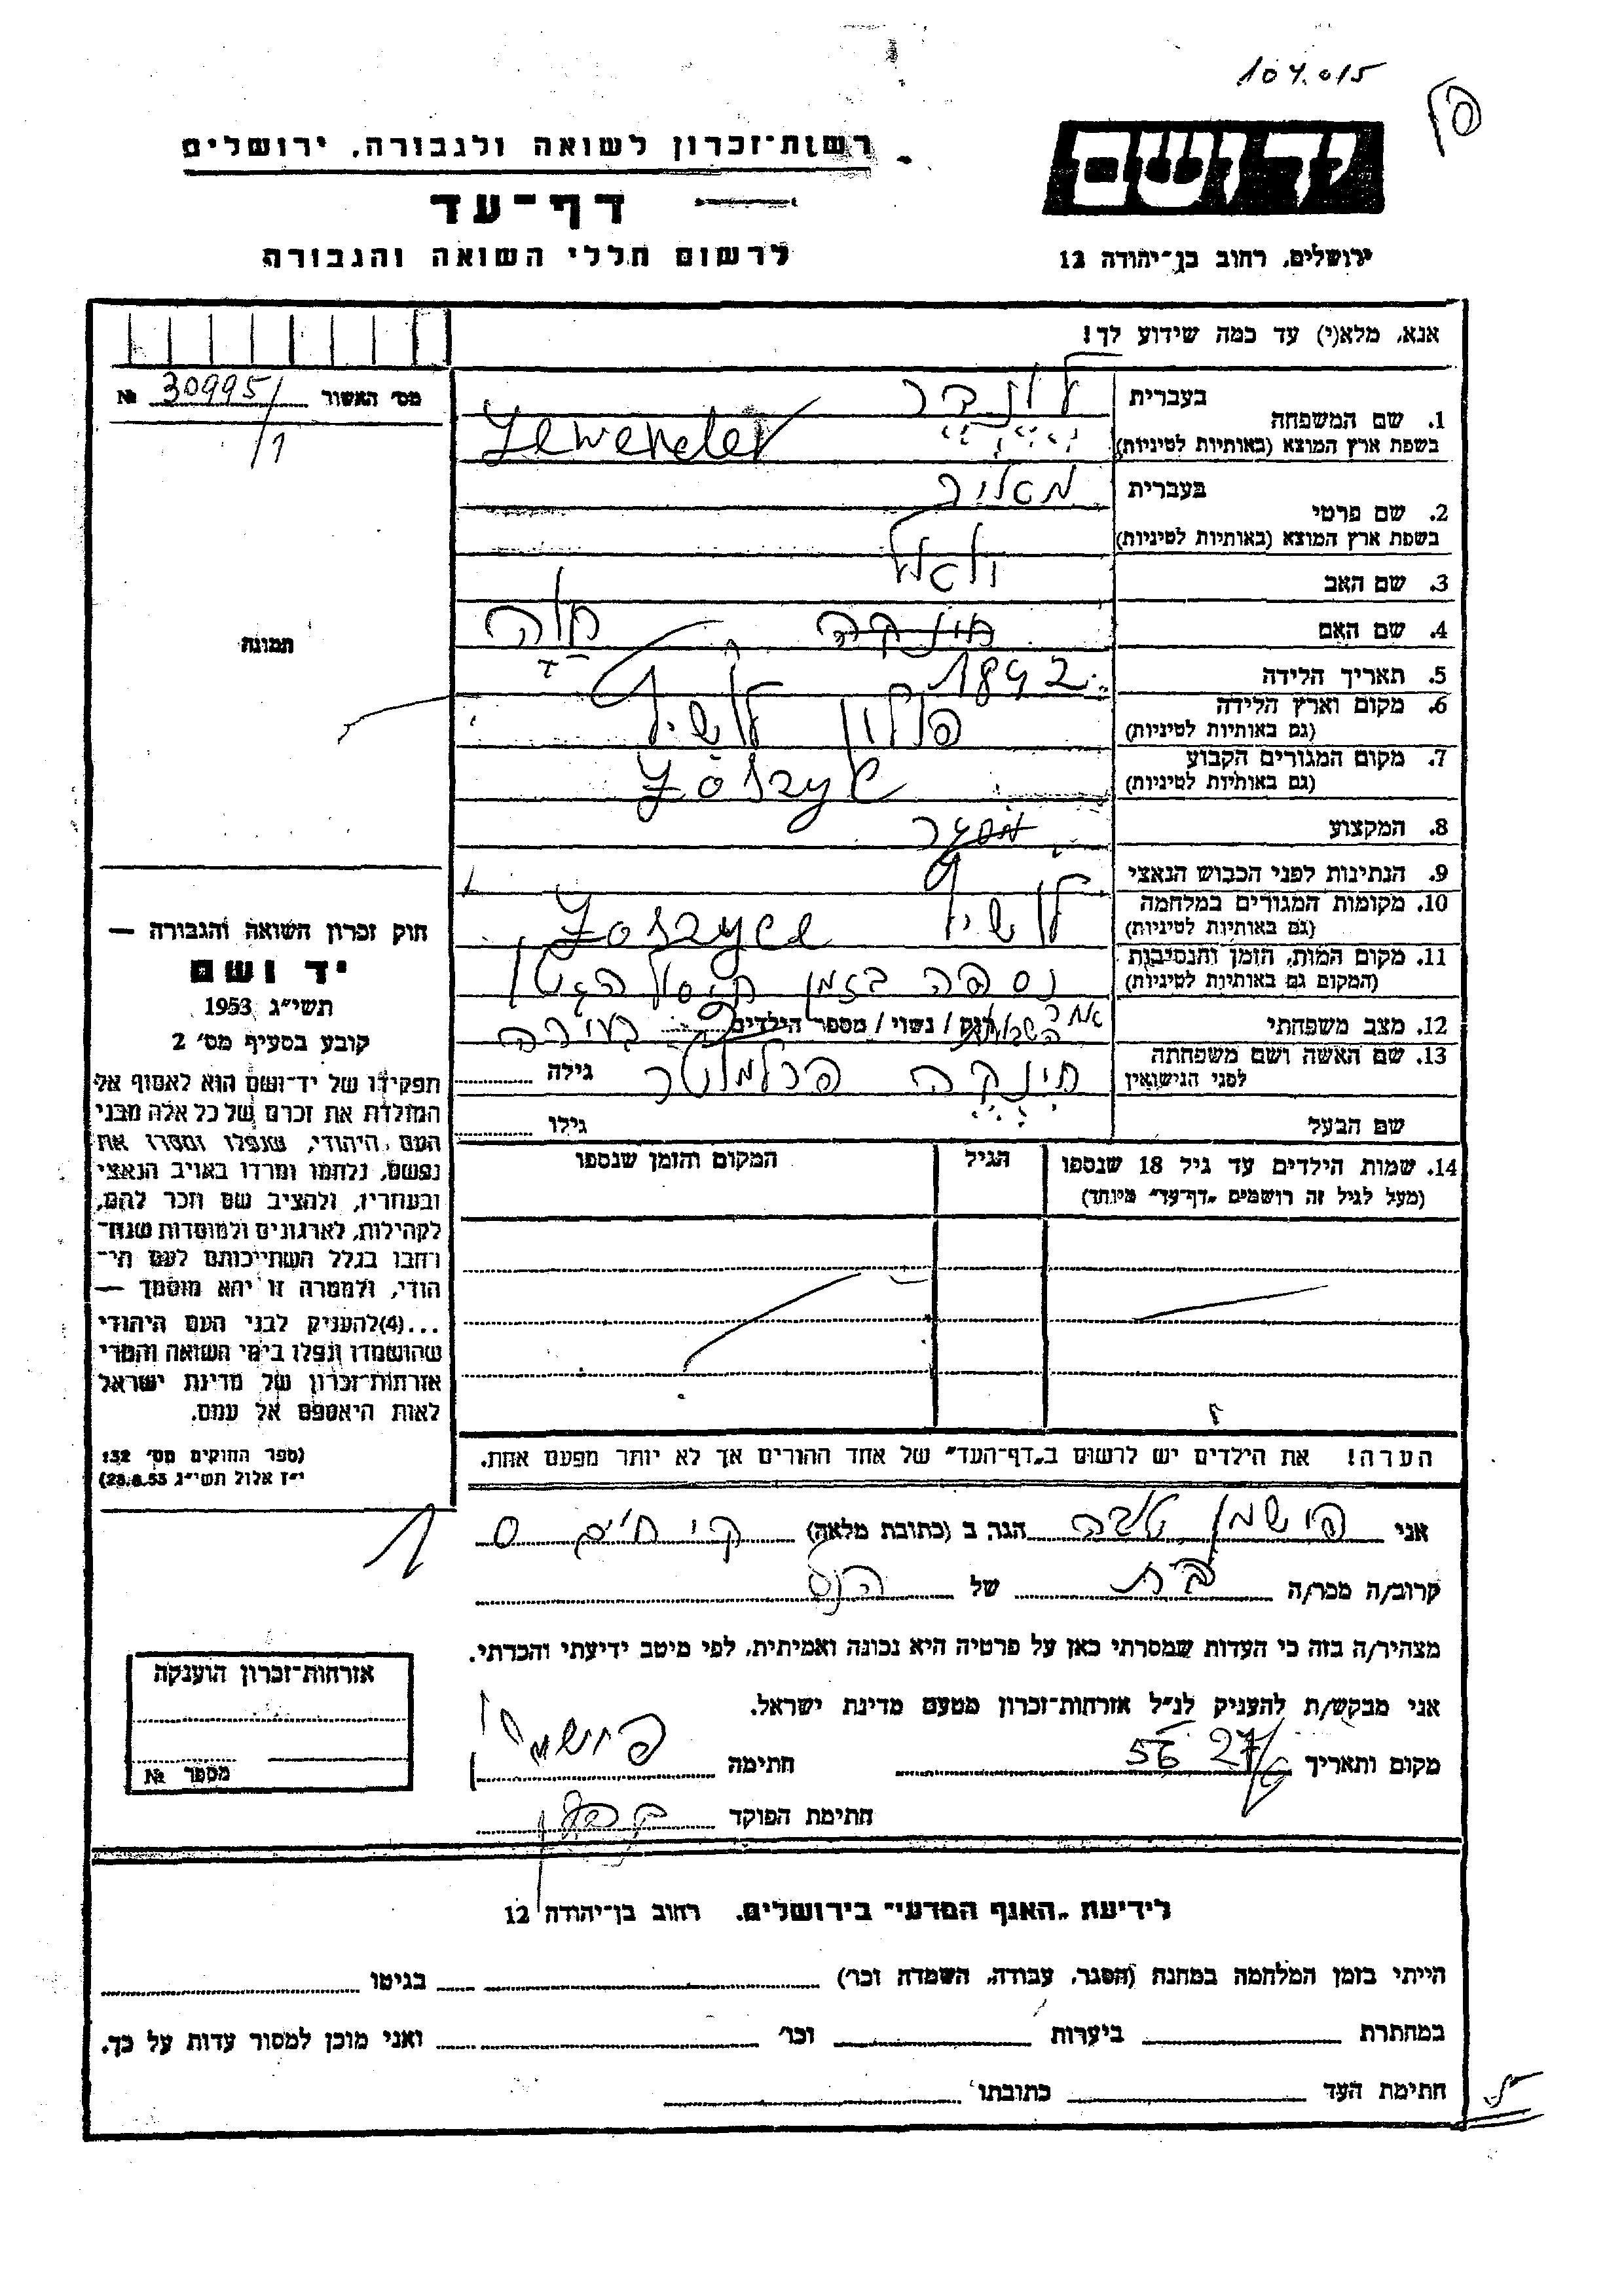 104.015
רשות־זכרון לשואה ולגבורה, ירושלים
יד ושם
דף־עד
לרשום חללי השואה והגבורה
ירושלים, רחוב בן־יהודה 12
אנא, מלא(י) עד כמה שידוע לך!
מס׳ האשור 30995/1 №
1. שם המשפחה
בעברית לונדר
בשפת ארץ המוצא (באותיות לטיניות) Lewender
2. שם פרטי
בעברית מאיר
בשפת ארץ המוצא (באותיות לטיניות)
3. שם האב
4. שם האם חינקה חוה
5. תאריך הלידה 1892
6. מקום וארץ הלידה
(גם באותיות לטיניות) פולין לושיץ
7. מקום המגורים הקבוע
(גם באותיות לטיניות) Łoszyc
8. המקצוע
9. הנתינות לפני הכבוש הנאצי
10. מקומות המגורים במלחמה
(גם באותיות לטיניות) לושיץ Łoszyce
11. מקום המות, הזמן והנסיבות
(המקום גם באותיות לטיניות) נספה בזמן חיסול הגטו
12. מצב משפחתי רוק / נשוי / מספר הילדים
13. שם האשה ושם משפחתה
לפני הנישואין חינקה גילה
שם הבעל גילו
14. שמות הילדים עד גיל 18 שנספו
(מעל לגיל זה רושמים „דף־עד״ מיוחד)
הגיל
המקום והזמן שנספו
הערה! את הילדים יש לרשום ב„דף־העד״ של אחד ההורים אך לא יותר מפעם אחת.
תמונה
חוק זכרון השואה והגבורה —
יד ושם
תשי״ג 1953
קובע בסעיף מס׳ 2
תפקידו של יד־ושם הוא לאסוף אל
המולדת את זכרם של כל אלה מבני
העם היהודי, שנפלו ומסרו את
נפשם, נלחמו ומרדו באויב הנאצי
ובעוזריו, ולהציב שם וזכר להם,
לקהילות, לארגונים ולמוסדות שנח־
רבו בגלל השתייכותם לעם הי־
הודי, ולמטרה זו יהא מוסמך —
...(4)להעניק לבני העם היהודי
שהושמדו ונפלו בימי השואה והמרי
אזרחות־זכרון של מדינת ישראל
לאות היאספם אל עמם.
(ספר החוקים מס׳ 132
י״ז אלול תשי״ג 28.8.53)
אני פישמן טובה הגר ב (כתובת מלאה) ק׳ חיים
קרוב/ה מכר/ה בת של הנ״ל
מצהיר/ה בזה כי העדות שמסרתי כאן על פרטיה היא נכונה ואמיתית, לפי מיטב ידיעתי והכרתי.
אני מבקש/ת להעניק לנ״ל אזרחות־זכרון מטעם מדינת ישראל.
מקום ותאריך 27/6 56 חתימה פישמן
חתימת הפוקד
אזרחות־זכרון הוענקה
מספר №
לידיעת „האגף המדעי״ בירושלים. רחוב בן־יהודה 12
הייתי בזמן המלחמה במחנה (הסגר, עבודה, השמדה וכו׳) בגיטו
במחתרת ביערות וכו׳ ואני מוכן למסור עדות על כך.
חתימת העד כתובתו